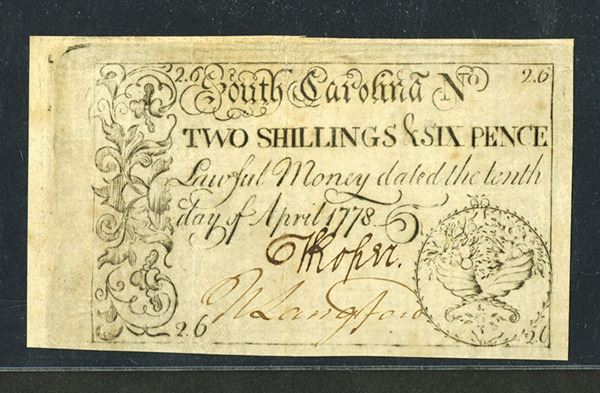 2.6 South Carolina No 2.6
TWO SHILLINGS & SIX PENCE
Lawful Money dated the tenth
day of April 1778
T Roper.
N Langford
2.6 2.6